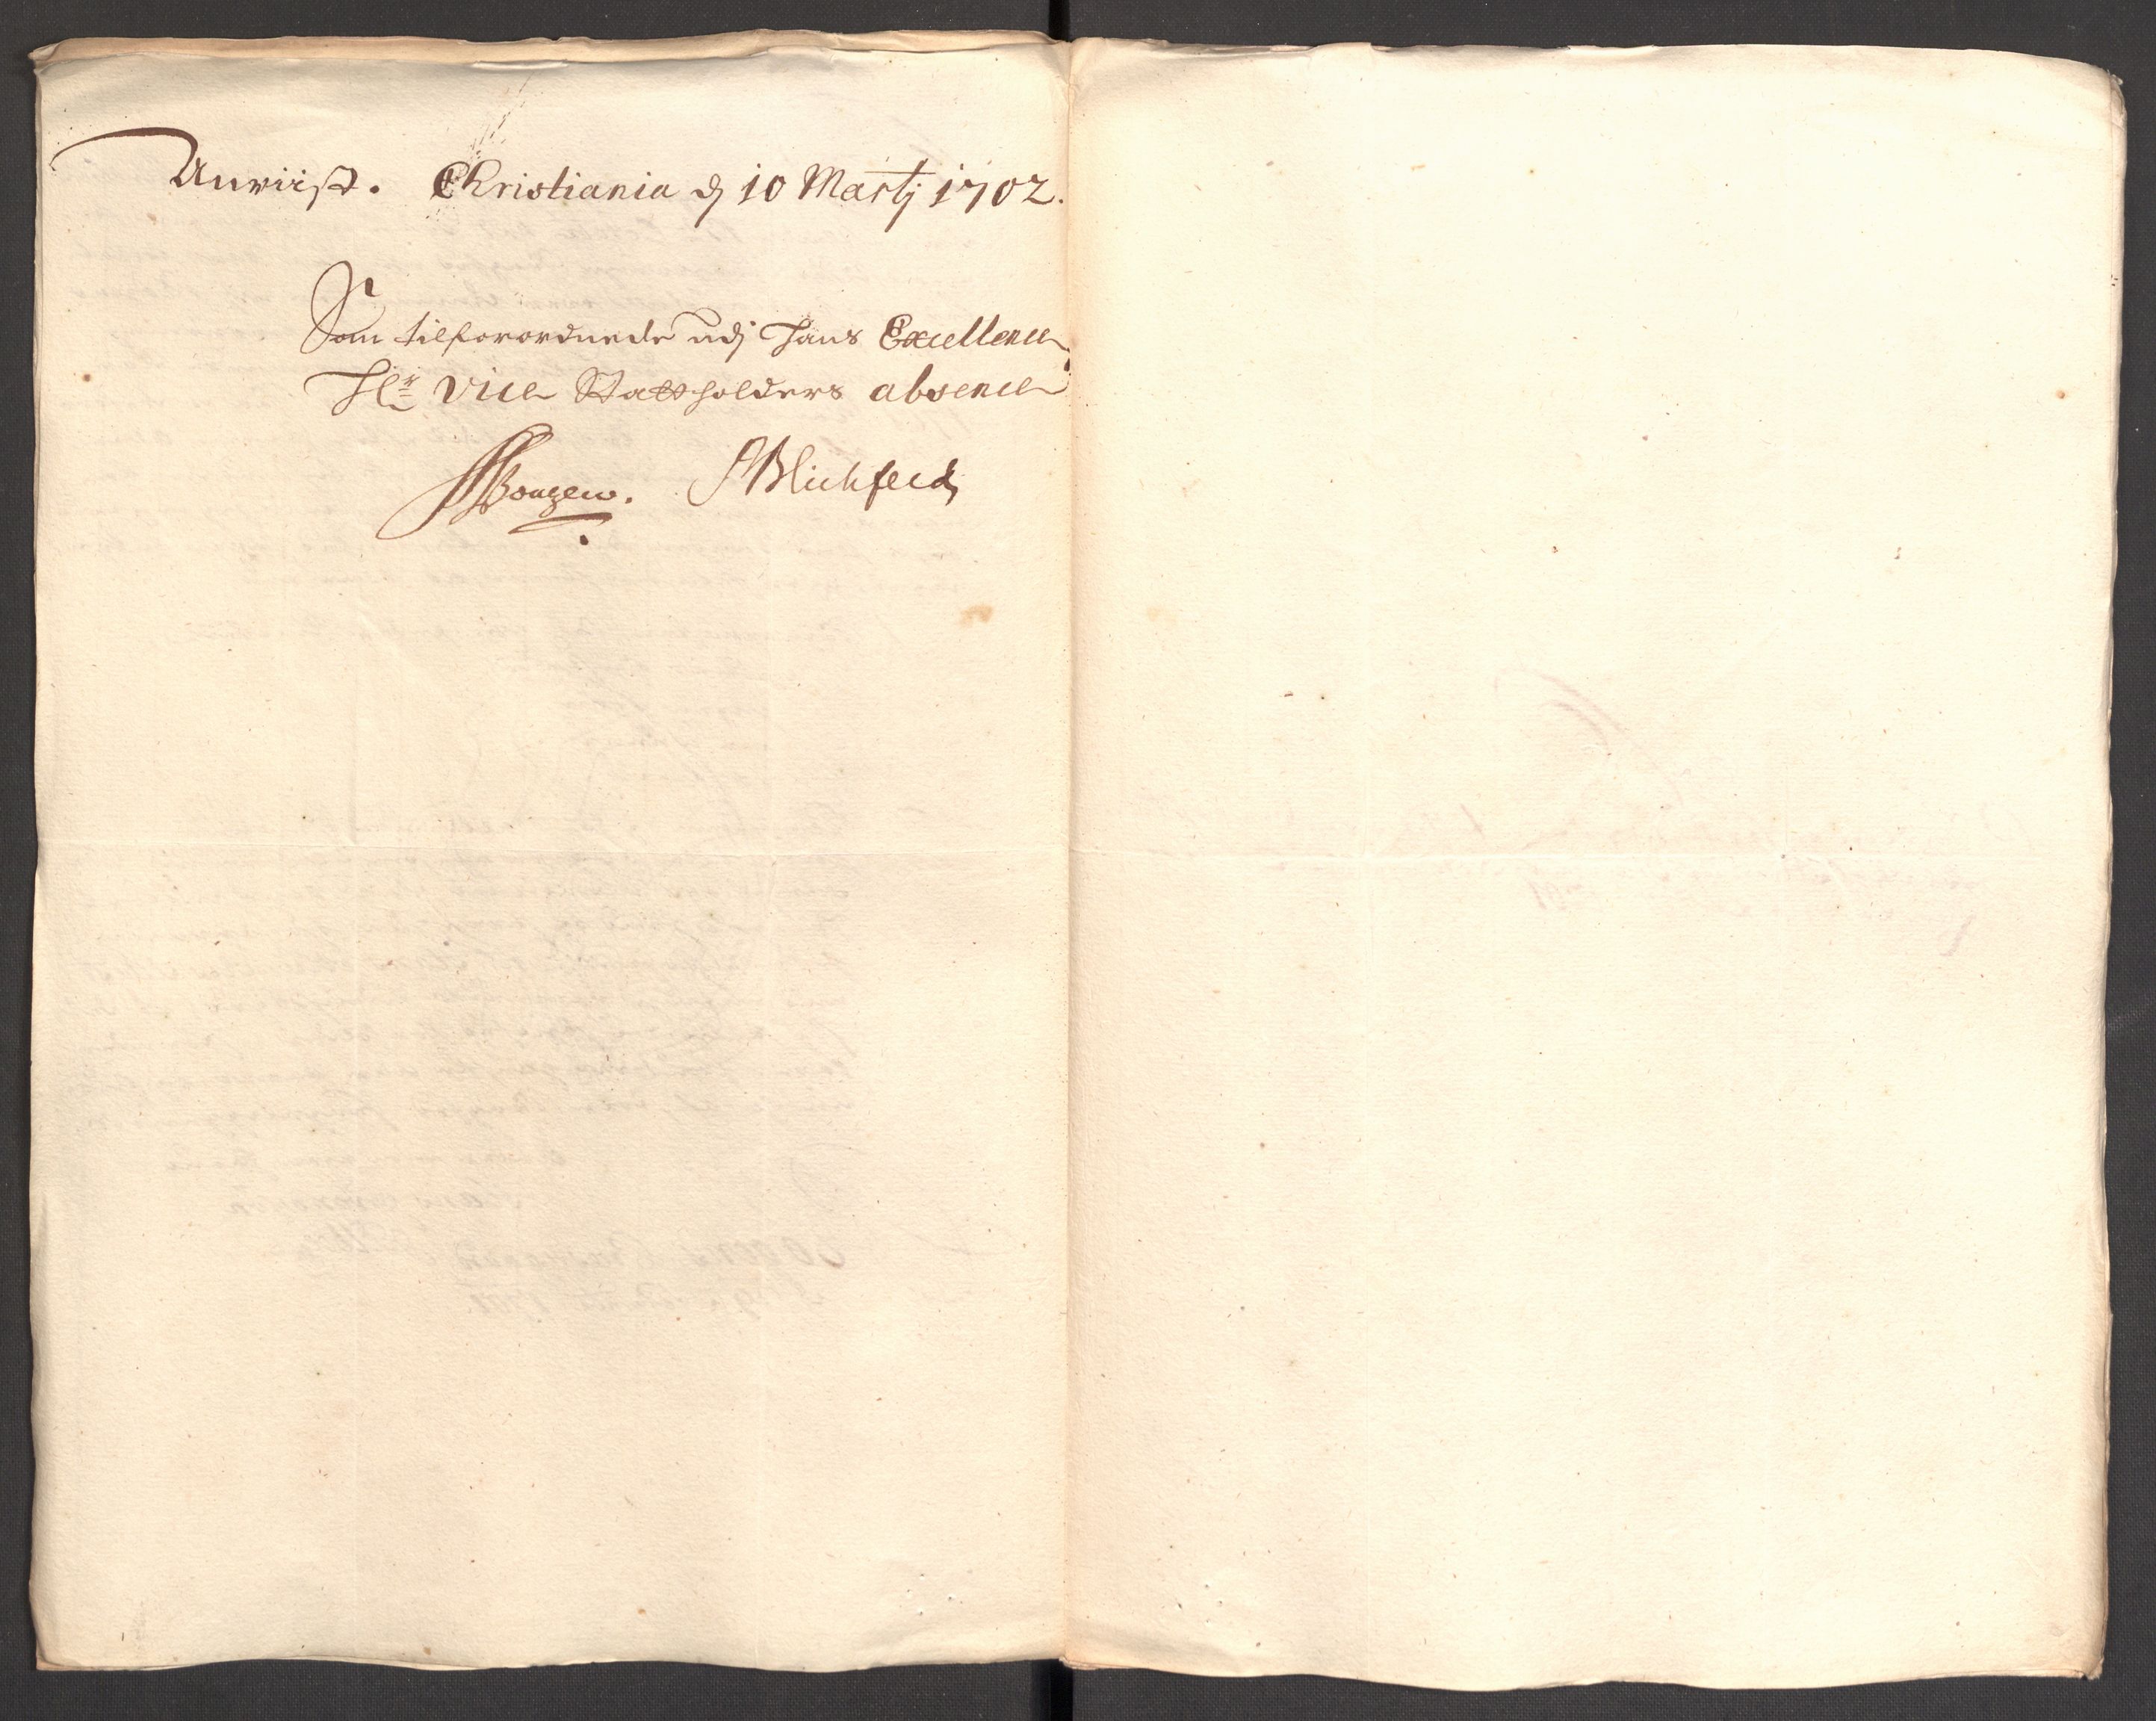 Anviist. Christiania d 10 Martj 1702.
Som tilforordnede udj Hans Excellence
Hr Vice Stattholders absence
Blichfeld